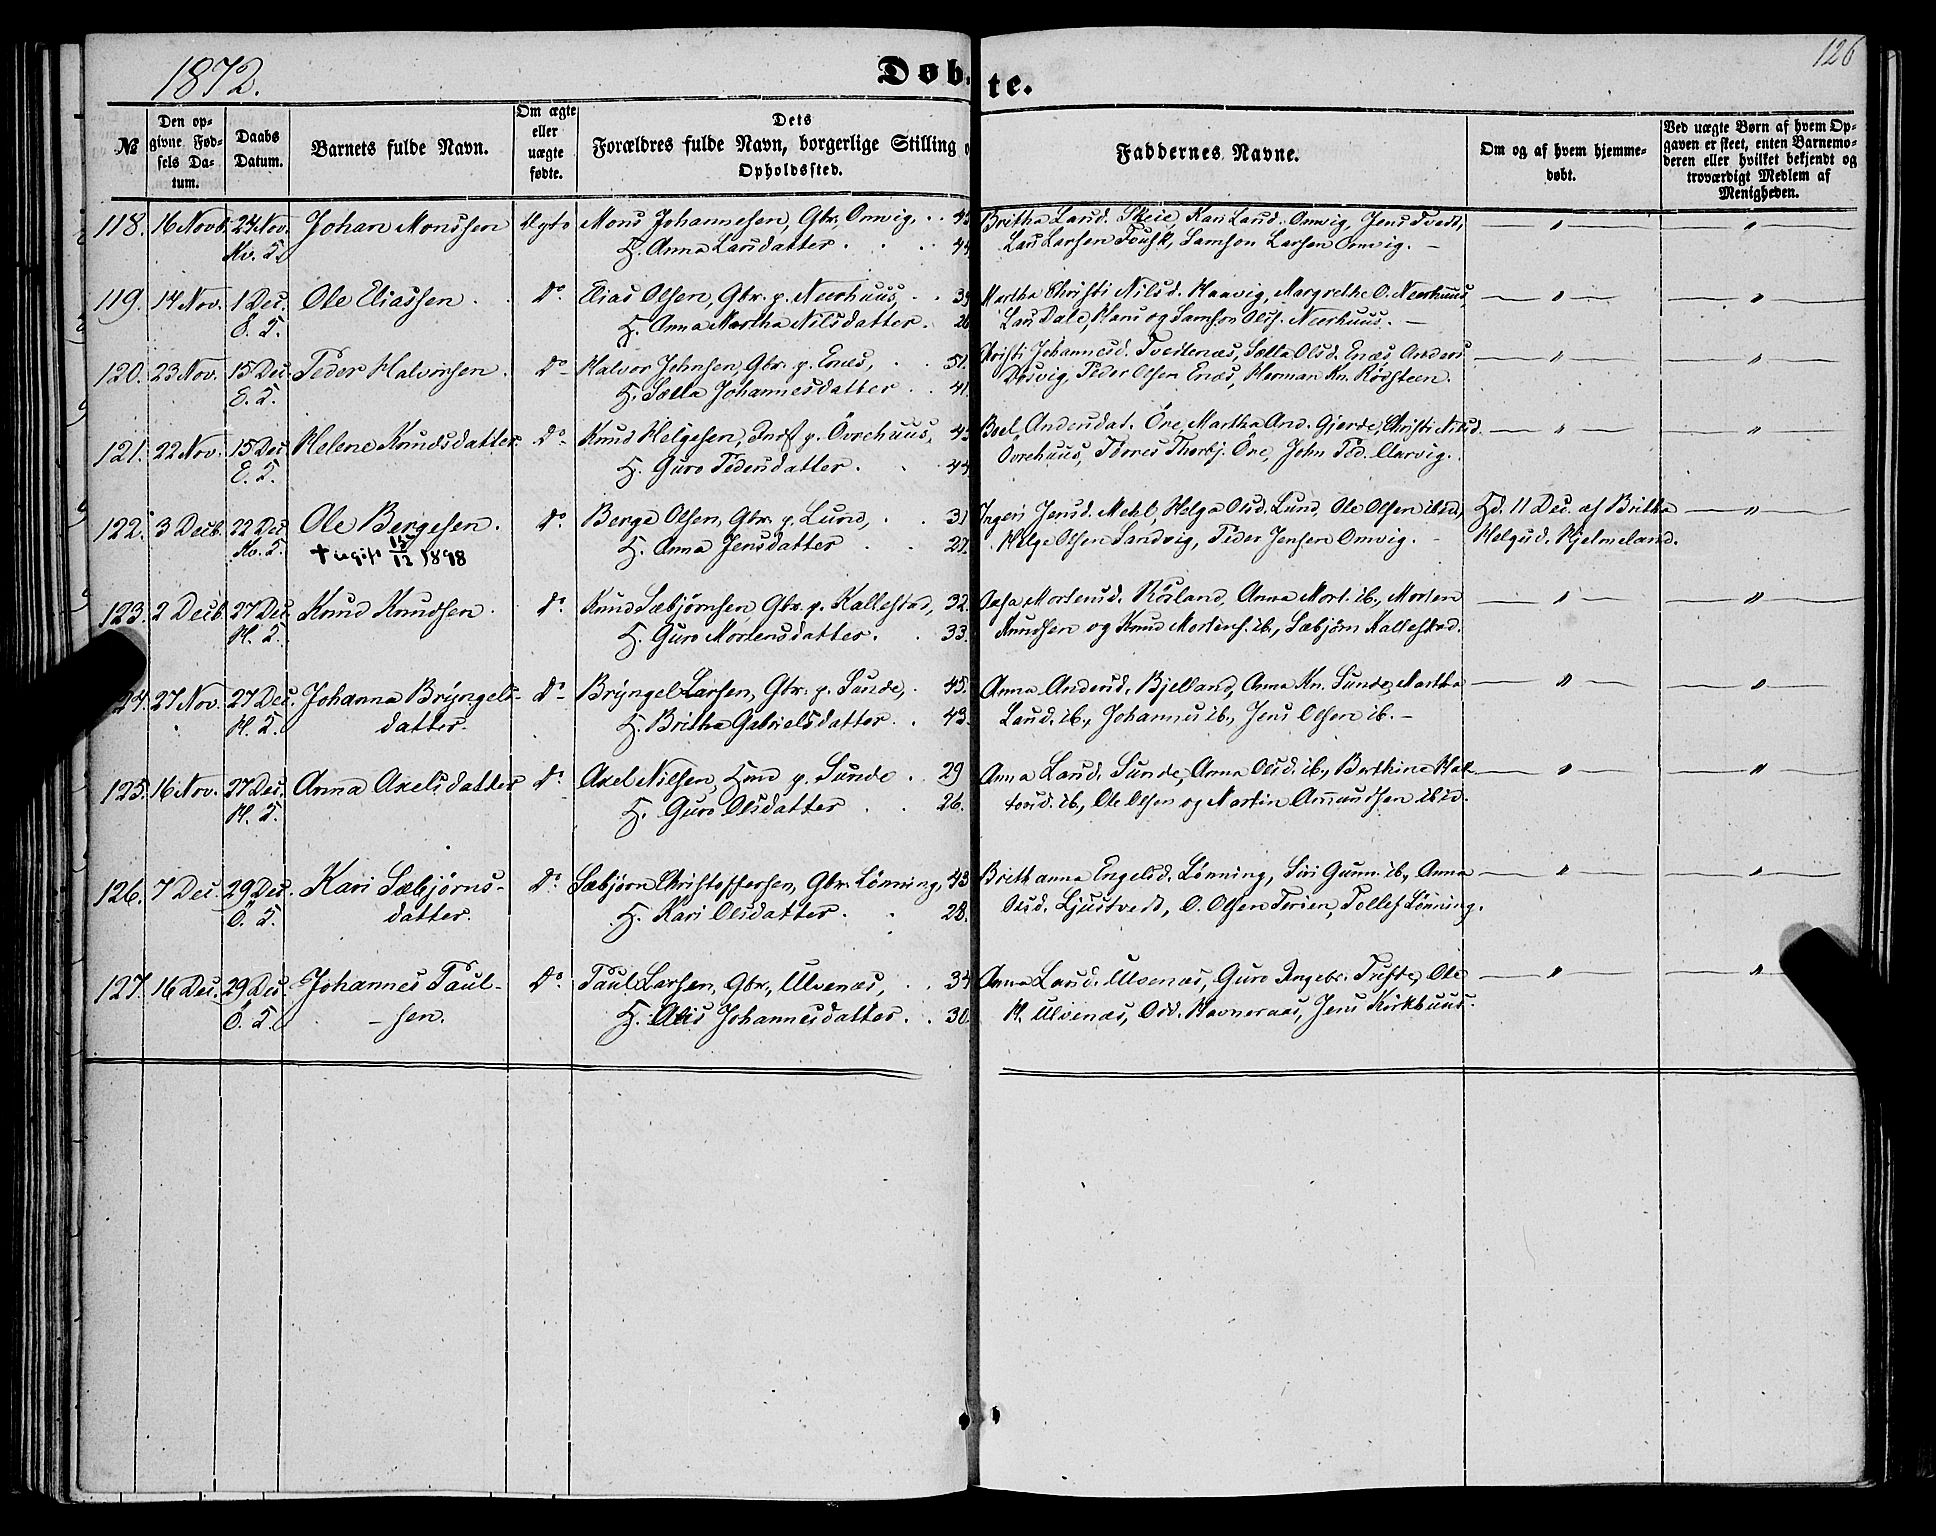 1872.
Døbte.
126
№
Den opgivne Fødsels Datum.
Daabs Datum.
Barnets fulde Navn.
Om ægte eller uægte fødte.
Dets Forældres fulde Navn, borgerlige Stilling o
Opholdssted.
Faddernes Navne.
Om og af hvem hjemmedøbt.
Ved uægte Børn af hvem Opgaven er skeet, enten Barnemoderen eller hvilket bekjendt og troværdigt Medlem af Menigheden.
118. 16 Novb. 24 Nov. Johan Monssen Ægte Mons Johannesen, Gbr. Omvig, 45 Britha Larsd. Skeie, Kari Larsd. Omvig, Jens Tvedt, — " — — " —
Kv. S. H. Anna Larsdatter 44 Lars Larsen Fousk, Samson Larsen Omvig. —
119. 14 Nov. 1 Dec. Ole Eliassen Do Elias Olsen, Gbr. p. Neerhuus, 39 Martha Christi Nilsd. Haavig, Margrethe O. Neerhuus — " — — " —
E. S. H. Anna Martha Nilsdatter. 26 Lars Dale, Hans og Samson Ols. Neerhuus. —
120. 23 Nov. 15 Dec. Peder Halvorsen. Do Halvor Johnsen, Gbr. p. Enæs, 51. Christi Johannesd. Tveitenæs, Sælta Olsd. Enæs, Anders — " — — " —
E. S. H. Sælla Johannesdatter 41. Døsvig, Peder Olsen Enæs, Herman Kn. Rødsteen.
121. 22 Nov. 15 Dec. Helene Knudsdatter Do Knud Helgesen, Inds. p. Övrehuus, 45 Boel Andersdat. Öre, Martha And. Gjerde, Christi Nilsd. — " — — " —
E. S. H. Guro Pedersdatter. 44 Övrehuus, Tdores Thorbj. Öre, John Ped. Alarvig.
122. 3 Decb. 22 Dec. Ole Bergesen. Do Berge Olsen, Gbr. p. Lund, 31 Ingeri Jensd. Mehl, Helga Olsd. Lund, Ole Olsen ibid, Hd. 11 Dec. af Britha — " —
Kv. S. † ugift 15/12 1898 H. Anna Jensdatter 27. Helge Olsen Sandvig, Peder Jensen Omvig. — Helgsd. Hjelmeland.
123. 2 Decb. 27 Dec. Knud Knudsen. Do Knud Sæbjørnsen, Gbr. p. Kallestad, 32. Aasa Mortensd. Röisland, Anna Mort. ib., Morten — " — — " —
H. S. H. Guro Mortensdatter. 33. Knudsen og Knud Mortens. ib., Sæbjörn Kallestad.
124. 27 Nov. 27 Dec. Johanna Bryngels- Do Bryngel Larsen, Gbr. p. Sunde, 45. Anna Andersd. Bjelland, Anna Kn. Sunde, Martha — " — — " —
H. S. datter. H. Britha Gabrielsdatter. 43. Larsd. ib., Johannes ib., Jens Olsen ib. —
125. 16 Nov. 27 Dec. Anna Axelsdatter Do Axel Nilsen, Hmd p. Sunde. 29 Anna Larsd. Sunde, Anna Olsd. ib., Berthine Hal- — " — — " —
H. S. H. Guro Olsdatter 26. torsd. ib., Ole Olsen og Martin Amundsen ibid.
126. 7 Dec. 29 Dec. Kari Sæbjörns- Do Sæbjörn Christoffersen, Gbr. Lönning, 43 Brithanna Engelsd. Lönning, Siri Gunn. ib., Anna — " — — " —
Ö. S. datter. H. Kari Olsdatter. 28. Olsd. Ljustvedt, O. Olsen Terøen, Tollef Lönning.
127. 16 Dec. 29 Dec. Johannes Paul- Do Paul Larsen, Gbr., Ulvenæs, 34 Anna Larsd. Ulvenæs, Guro Ingebr. Tufte, Ole — " — — " —
Ö. S. — sen. H. Alis Johannesdatter. 30. H. Ulvenæs, Odd. Havneraas, Jens Kirkhuus.